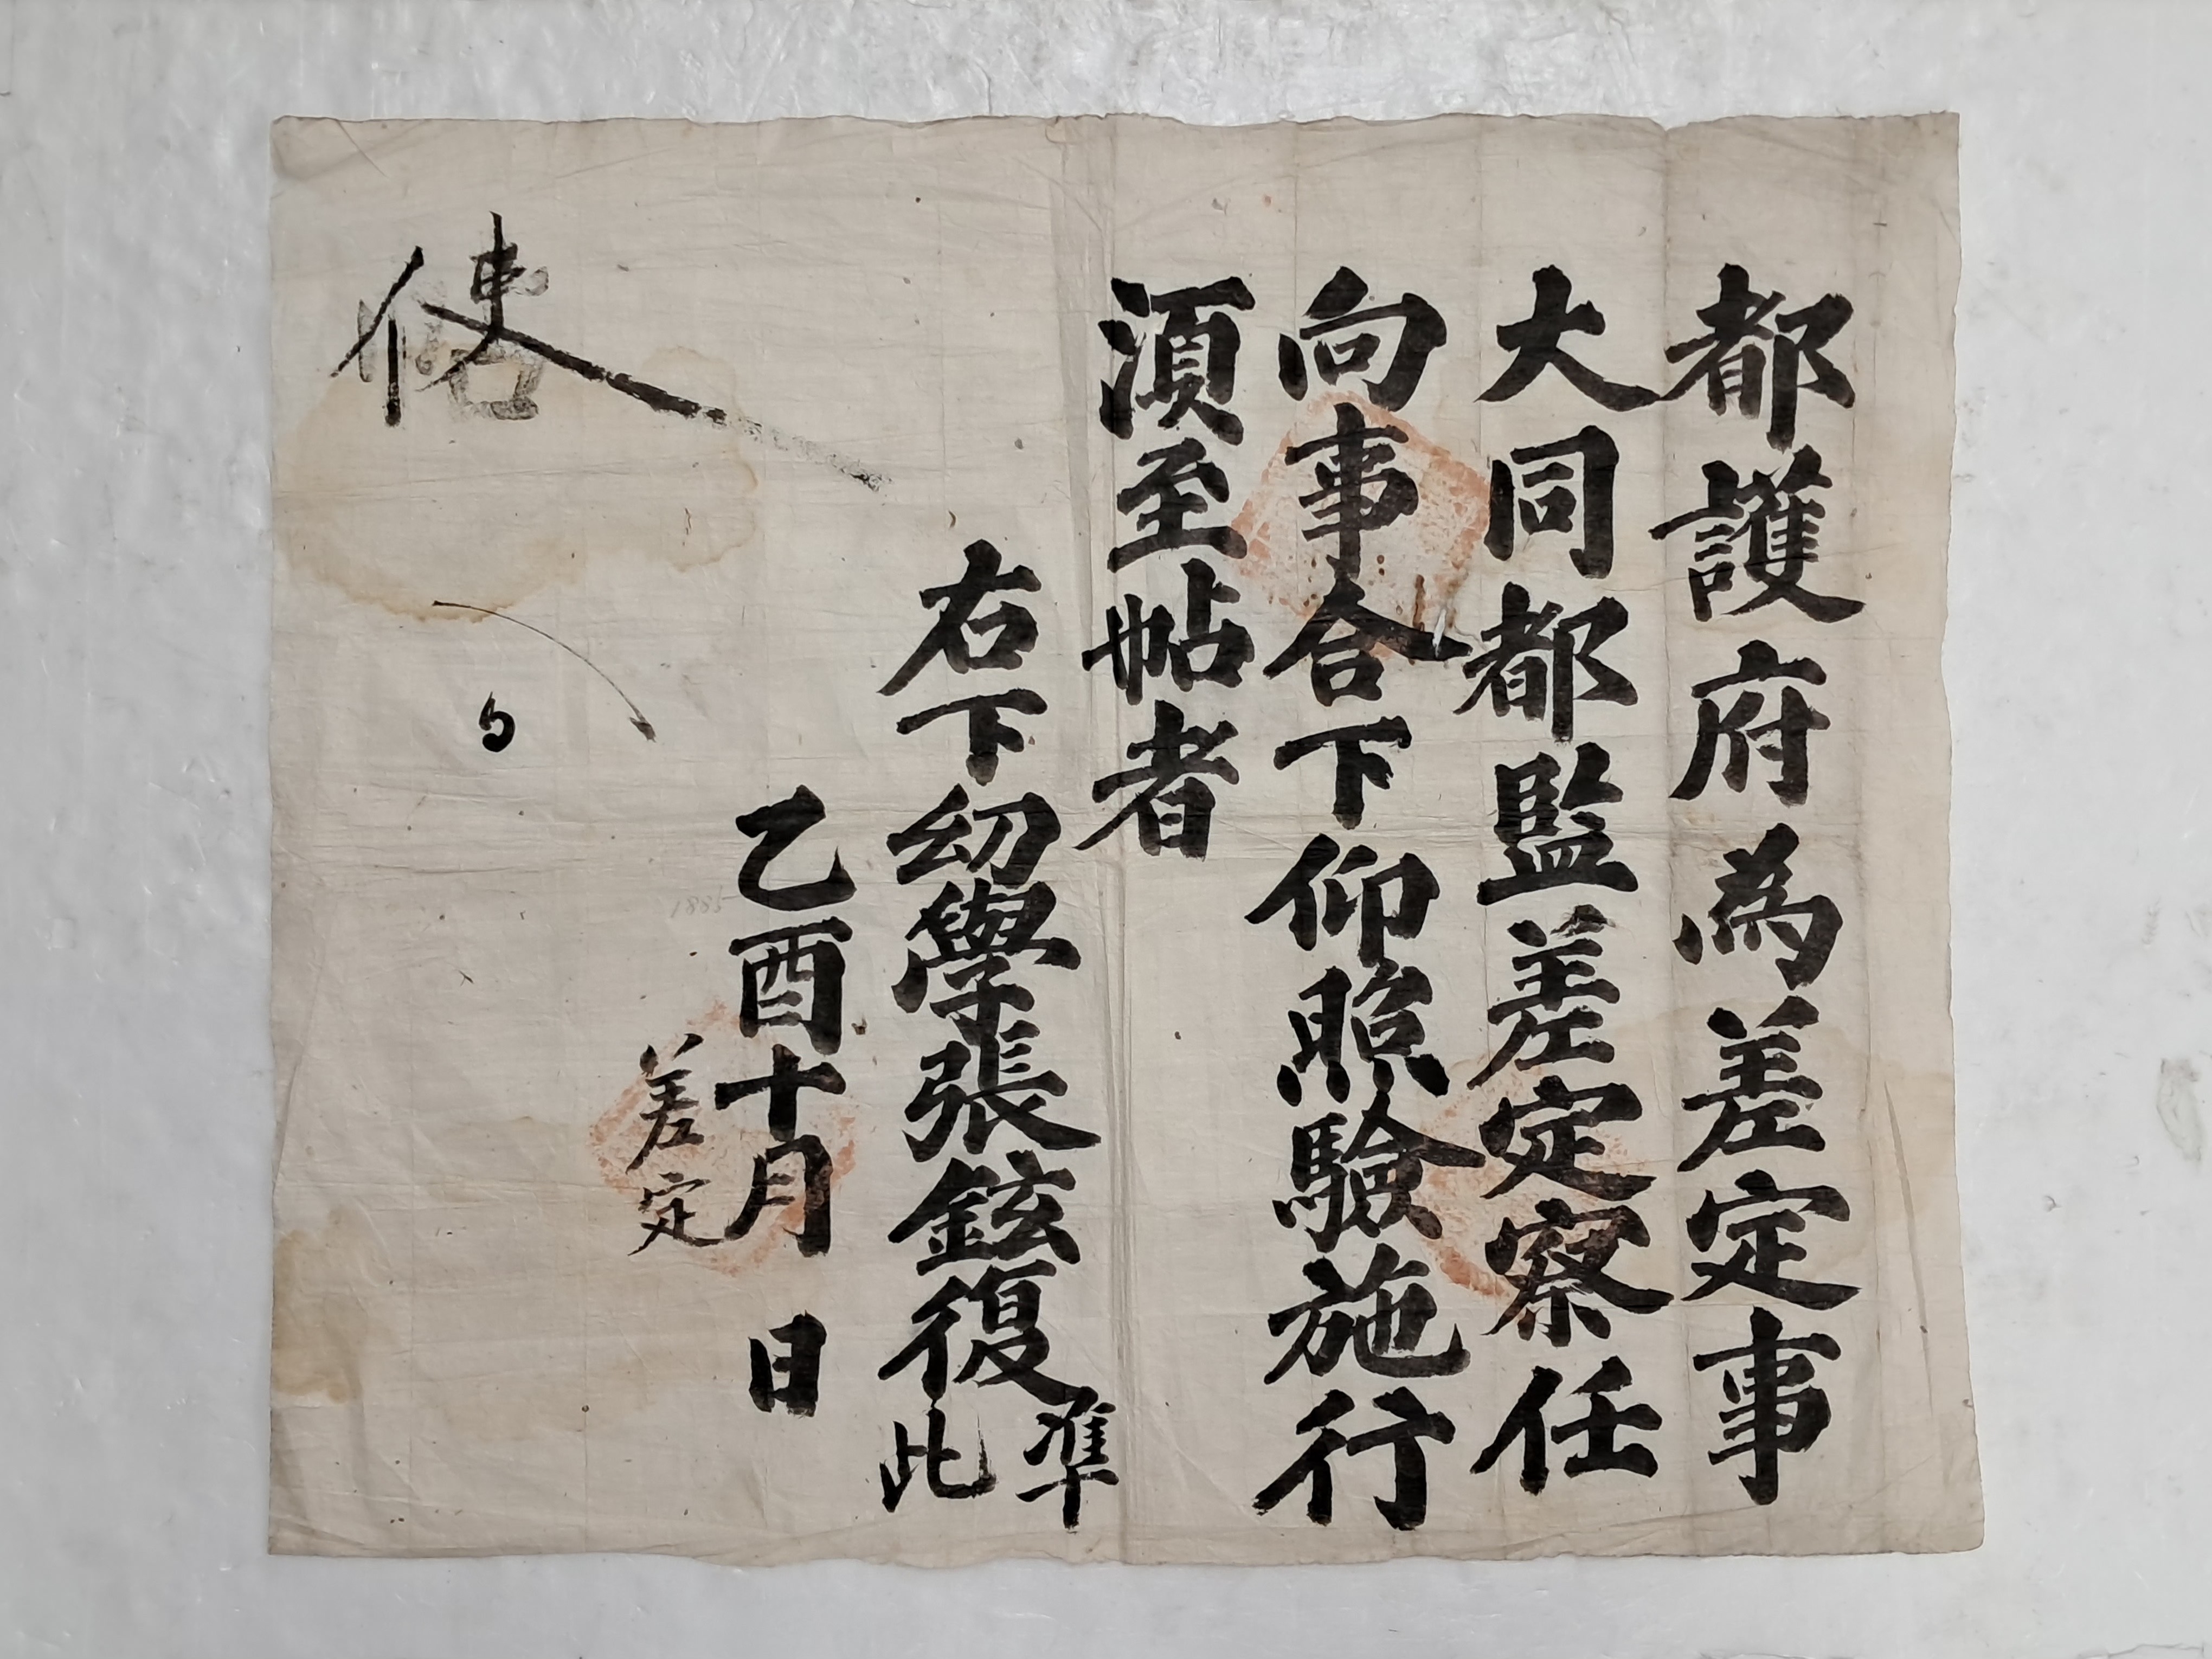 都護府為差定事
大同都監差定察任
向事合下仰照驗施行
湏至帖者
右下幼學張鉉復 準此
乙酉十月 日
差定
1885
使